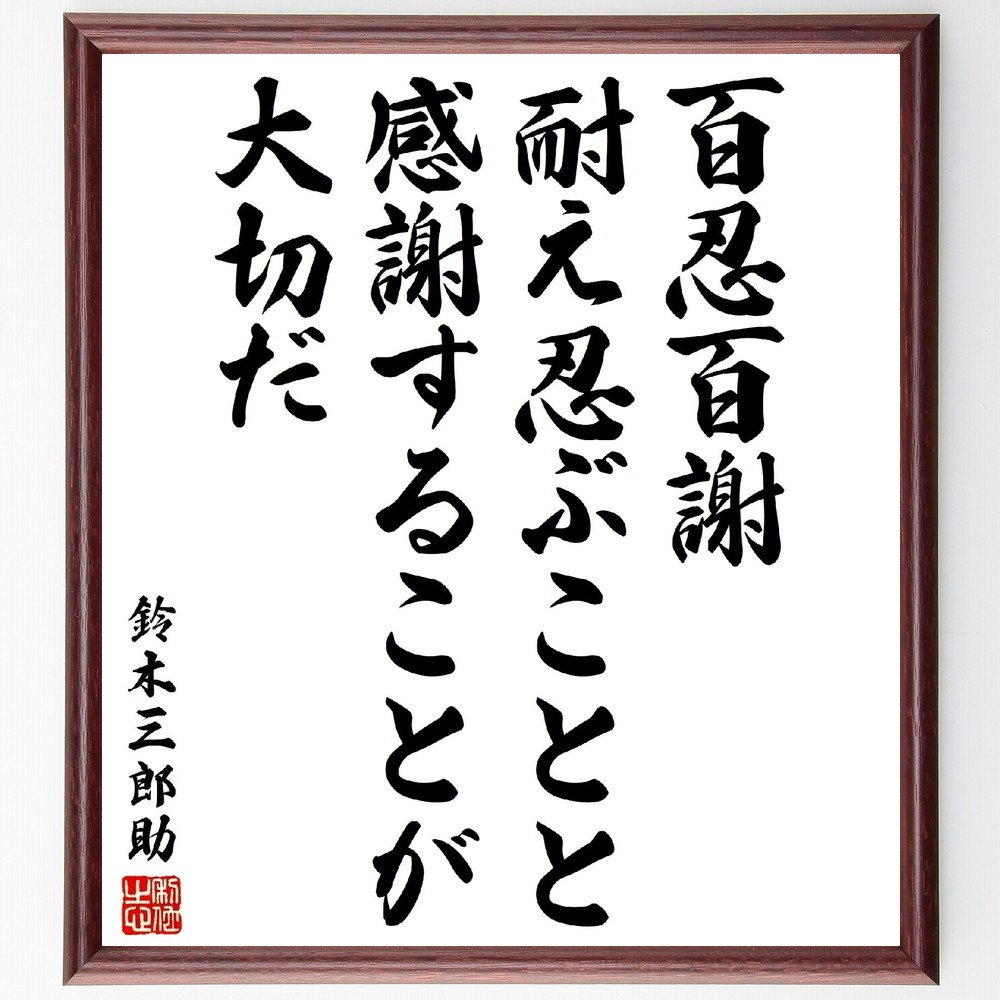 百忍百謝
耐え忍ぶことと
感謝することが
大切だ
鈴木三郎助